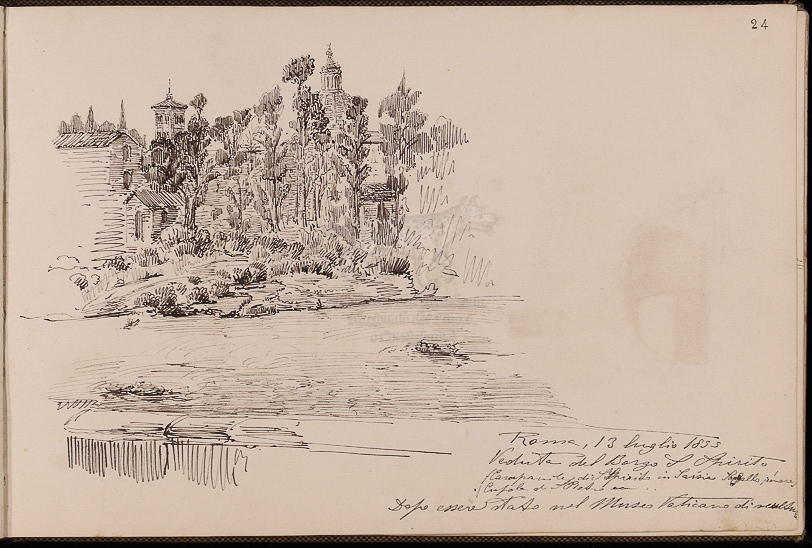 24
Roma, 13 luglio 1855
Veduta del Borgo S. Spirito
(Campanile di S Spirito in Sassia
Cupola di S Pietro
Dopo essere stato nel Museo Vaticano di